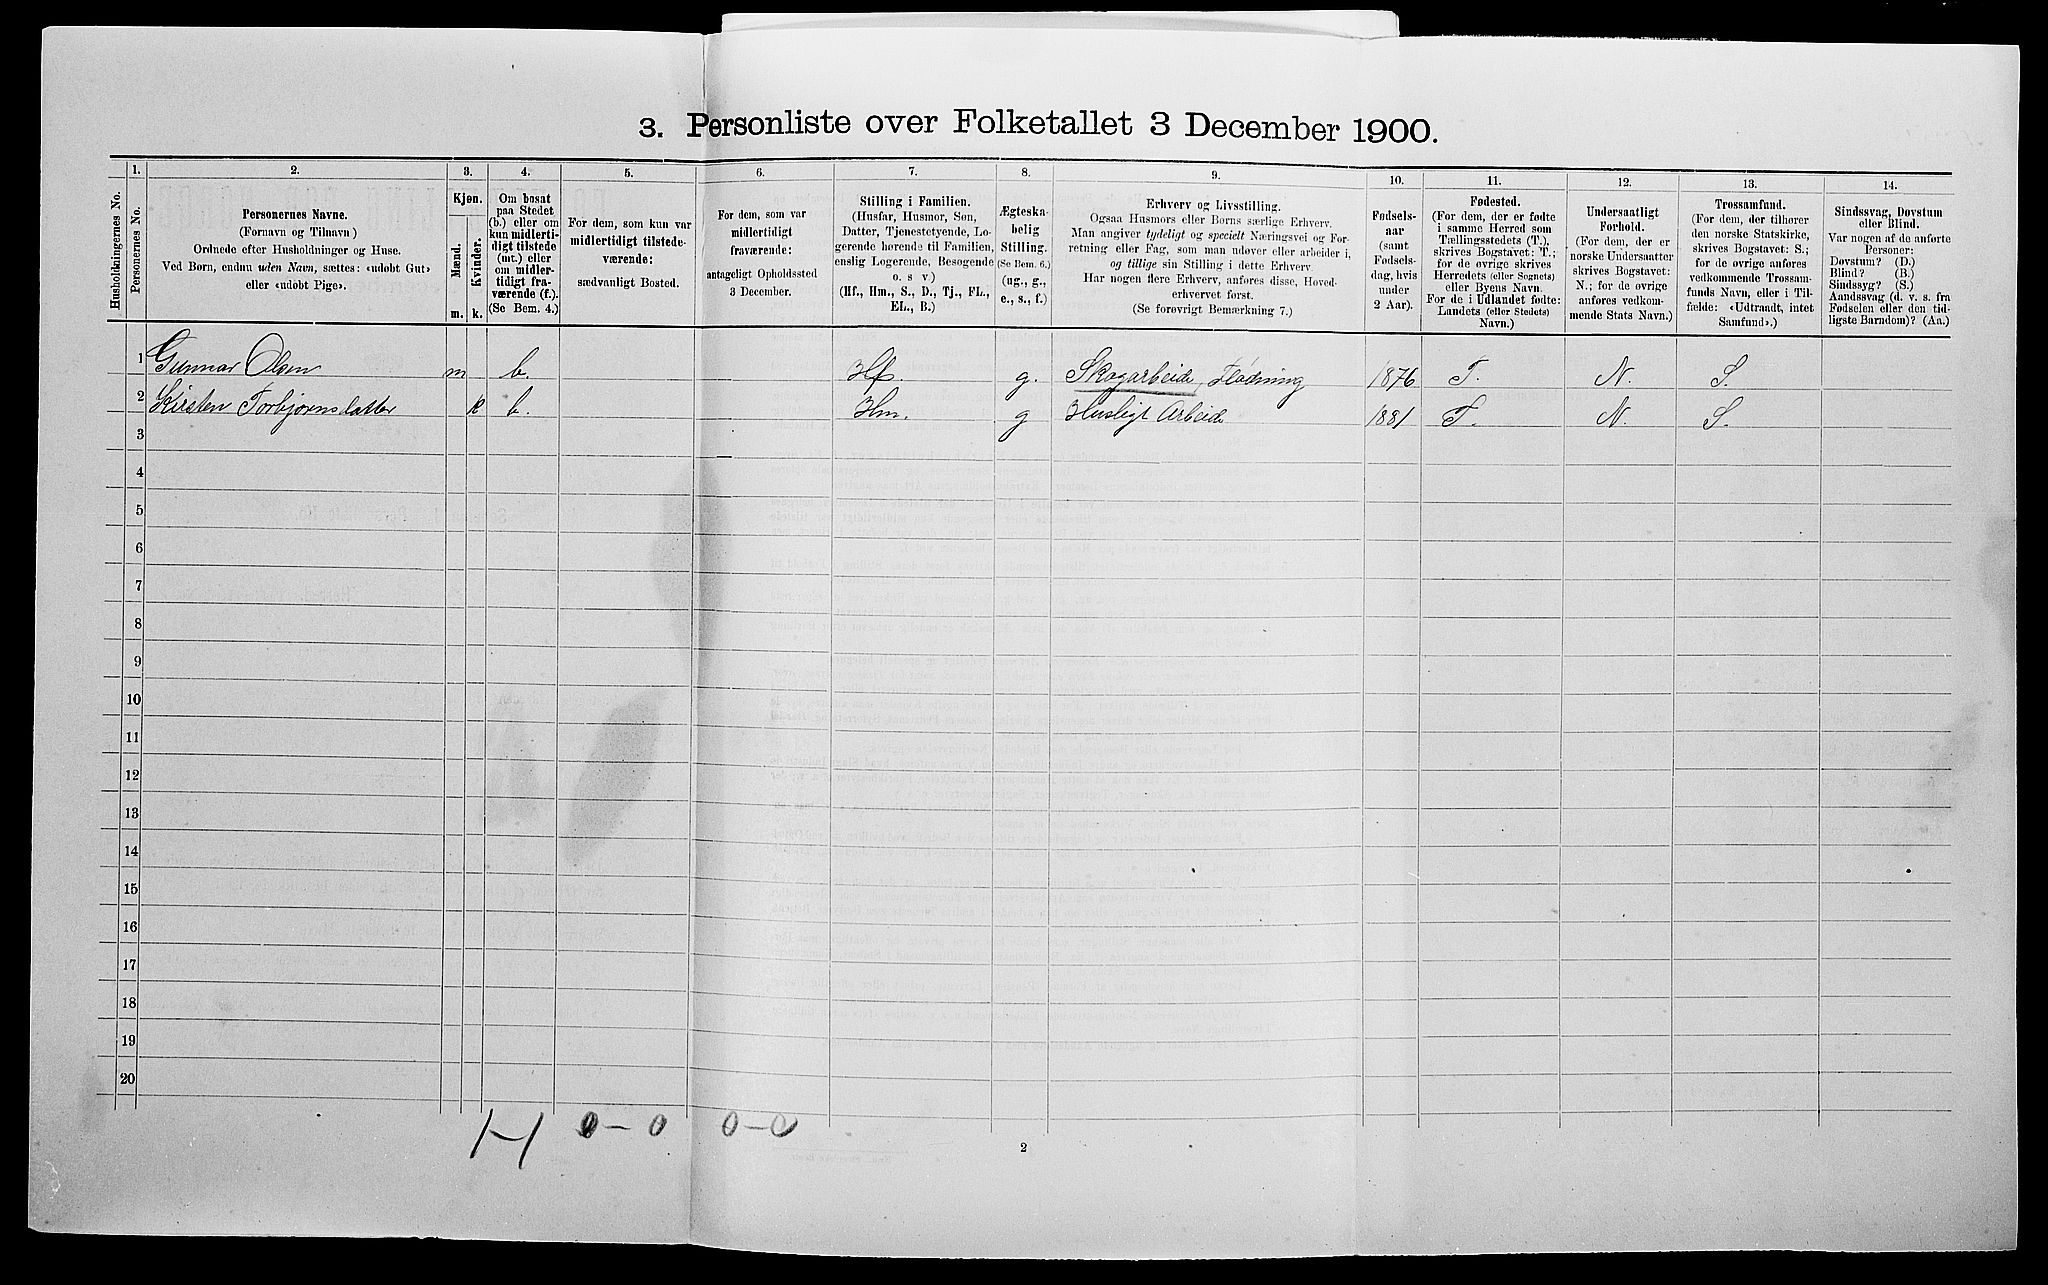 3. Personliste over Folketallet 3 December 1900.
1. 2. 3. 4. 5. 6. 7. 8. 9. 10. 11. 12. 13. 14.
Husholdningernes No.
Personernes No.
Personernes Navne.
(Fornavn og Tilnavn)
Ordnede efter Husholdninger og Huse.
Ved Børn, endnu uden Navn, sættes: «udøbt Gut»
eller «udøbt Pige».
Kjøn.
Mænd.
Kvinder.
m. k.
Om bosat
paa Stedet
(b.) eller om
kun midlerti-
digt tilstede
(mt.) eller
om midler-
tidigt fra-
værende (f.).
(Se Bem. 4.)
For dem, som kun var
midlertidigt tilstede-
værende:
sædvanligt Bosted.
For dem, som var
midlertidigt
fraværende:
antageligt Opholdssted
3 December.
Stilling i Familien.
(Husfar, Husmor, Søn,
Datter, Tjenestetyende, Lo-
gerende hørende til Familien,
enslig Logerende, Besøgende
o. s v)
(Hf., Hm., S., D., Tj., FL.,
EL., B.)
Ægteska-
belig
Stilling.
(Se Bem. 6.)
(ug., g.,
e., s., f.)
Erhverv og Livsstilling.
Ogsaa Husmors eller Børns særlige Erhverv.
Man angiver tydeligt og specielt Næringsvei og For-
retning eller Fag, som man udøver eller arbeider i,
og tillige sin Stilling i dette Erhverv.
Har nogen flere Erhverv, anføres disse, Hoved-
erhvervet først.
(Se forøvrigt Bemærkning 7.)
Fødsels-
aar
(samt
Fødsels-
dag, hvis
under
2 Aar).
Fødested.
(For dem, der er fødte
i samme Herred som
Tællingsstedets (T.),
skrives Bogstavet: T.;
for de øvrige skrives
Herredets (eller Sognets)
eller Byens Navn.
For de i Udlandet fødte:
Landets (eller Stedets)
Navn.)
Undersaatligt
Forhold.
(For dem, der er
norske Undersaatter
skrives Bogstavet:
N.; for de øvrige
anføres vedkom-
mende Stats Navn.)
Trossamfund.
(For dem, der tilhører
den norske Statskirke,
skrives Bogstavet: S.;
for de øvrige anføres
vedkommende Trossam-
funds Navn, eller i Til-
fælde: «Udtraadt, intet
Samfund».)
Sindssvag, Døvstum
eller Blind.
Var nogen af de anførte
Personer:
Døvstum? (D.)
Blind? (B.)
Sindssyg? (S.)
Aandssvag (d. v. s. fra
Fødselen eller den tid-
ligste Barndom)? (Aa.)
1 Gunnar Olsen m b. Hf. g. Skogarbeide, Flødning 1876 T. N. S.
2 Kirsten Torbjørnsdatter k b. Hm. g Husligt Arbeide 1881 T. N. S.
3
4
5
6
7
8
9
10
11
12
13
14
15
16
17
18
19
20
1-1 0-0 0-0
2